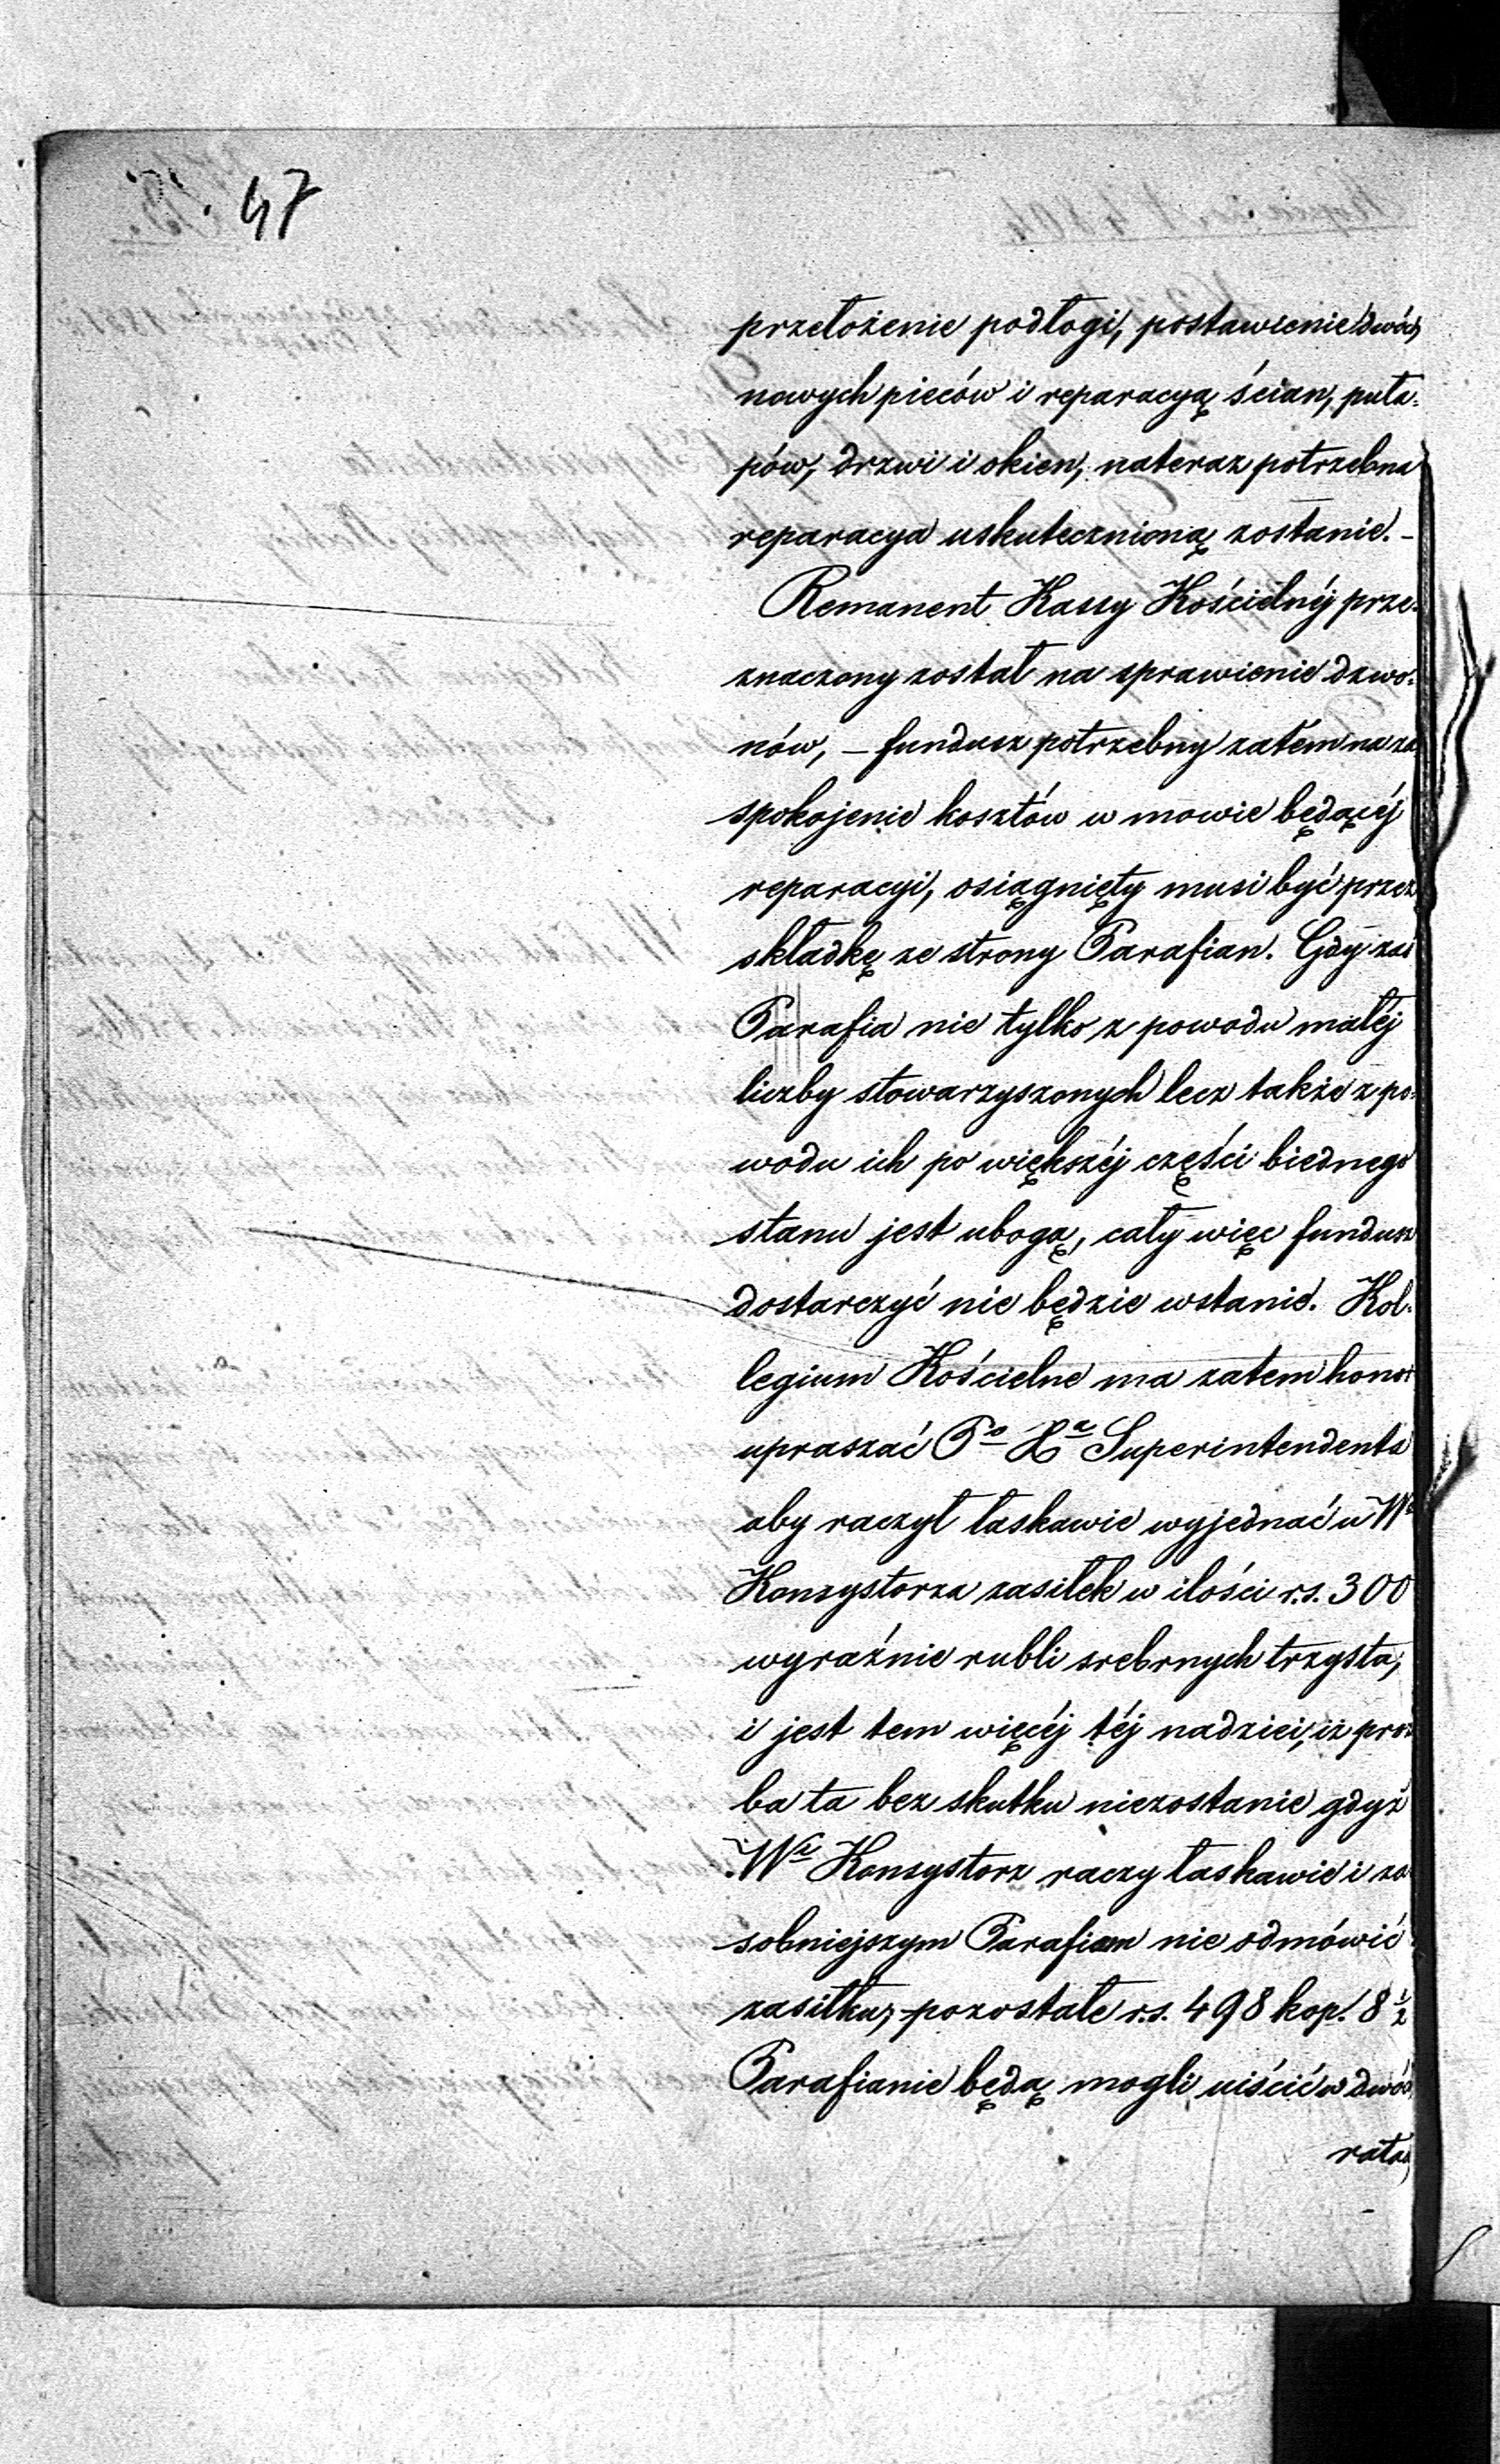 47
przełożenie podłogi, postawienie dwóch
nowych pieców i reparacyą ścian, puła-
pów, drzwi i okien, nateraz potrzebna
reparacya uskutecznioną zostanie. –
Remanent Kassy Kościelnéj prze-
znaczony został na sprawienie dzwo-
nów, – fundusz potrzebny zatém na za
spokojenie kosztów w mowie będącéj
reparacyi, osiągnięty musi być przez
składkę ze strony Parafian. Gdy zaś
Parafia nie tylko z powodu małéj
liczby stowarzyszonych lecz także z po-
wodu ich po większéj części biednego
stanu jest ubogą, cały więc fundusz
dostarczyć nie będzie wstanie. Kol-
legium Kościelne ma zatem honor
upraszać Pº Xª Superintendenta
aby raczył łaskawie wyjednać u Wº
Konsystorza zasiłek w ilości r.s. 300
wyraźnie rubli srebrnych trzysta,
i jest tem więcéj téj nadziei, iż proz
ba ta bez skutku niezostanie gdyż
Wy Konsystorz raczy łaskawie i za
sobniejszym Parafiom nie odmówić
zasiłku, – pozostałe r.s. 498 kop. 8 ½
Parafianie będą mogli uiścić w dwóch
ratach